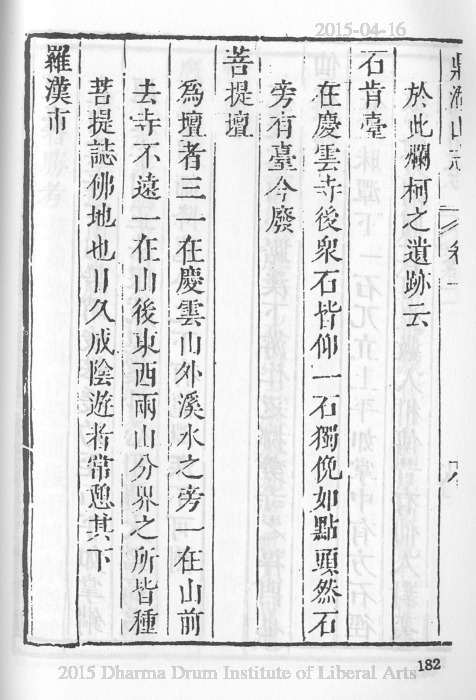 2015-04-16
鼎湖山志 卷一
於此爛柯之遺跡云
石肯臺
在慶雲寺後衆石皆仰一石獨俛如點頭然石
旁有臺今廢
菩提壇
爲壇者三一在慶雲山外溪水之旁一在山前
去寺不遠一在山後東西兩山分界之所皆種
菩提誌佛地也日久成陰遊者常憩其下
羅漢市
182
2015 Dharma Drum Institute of Liberal Arts